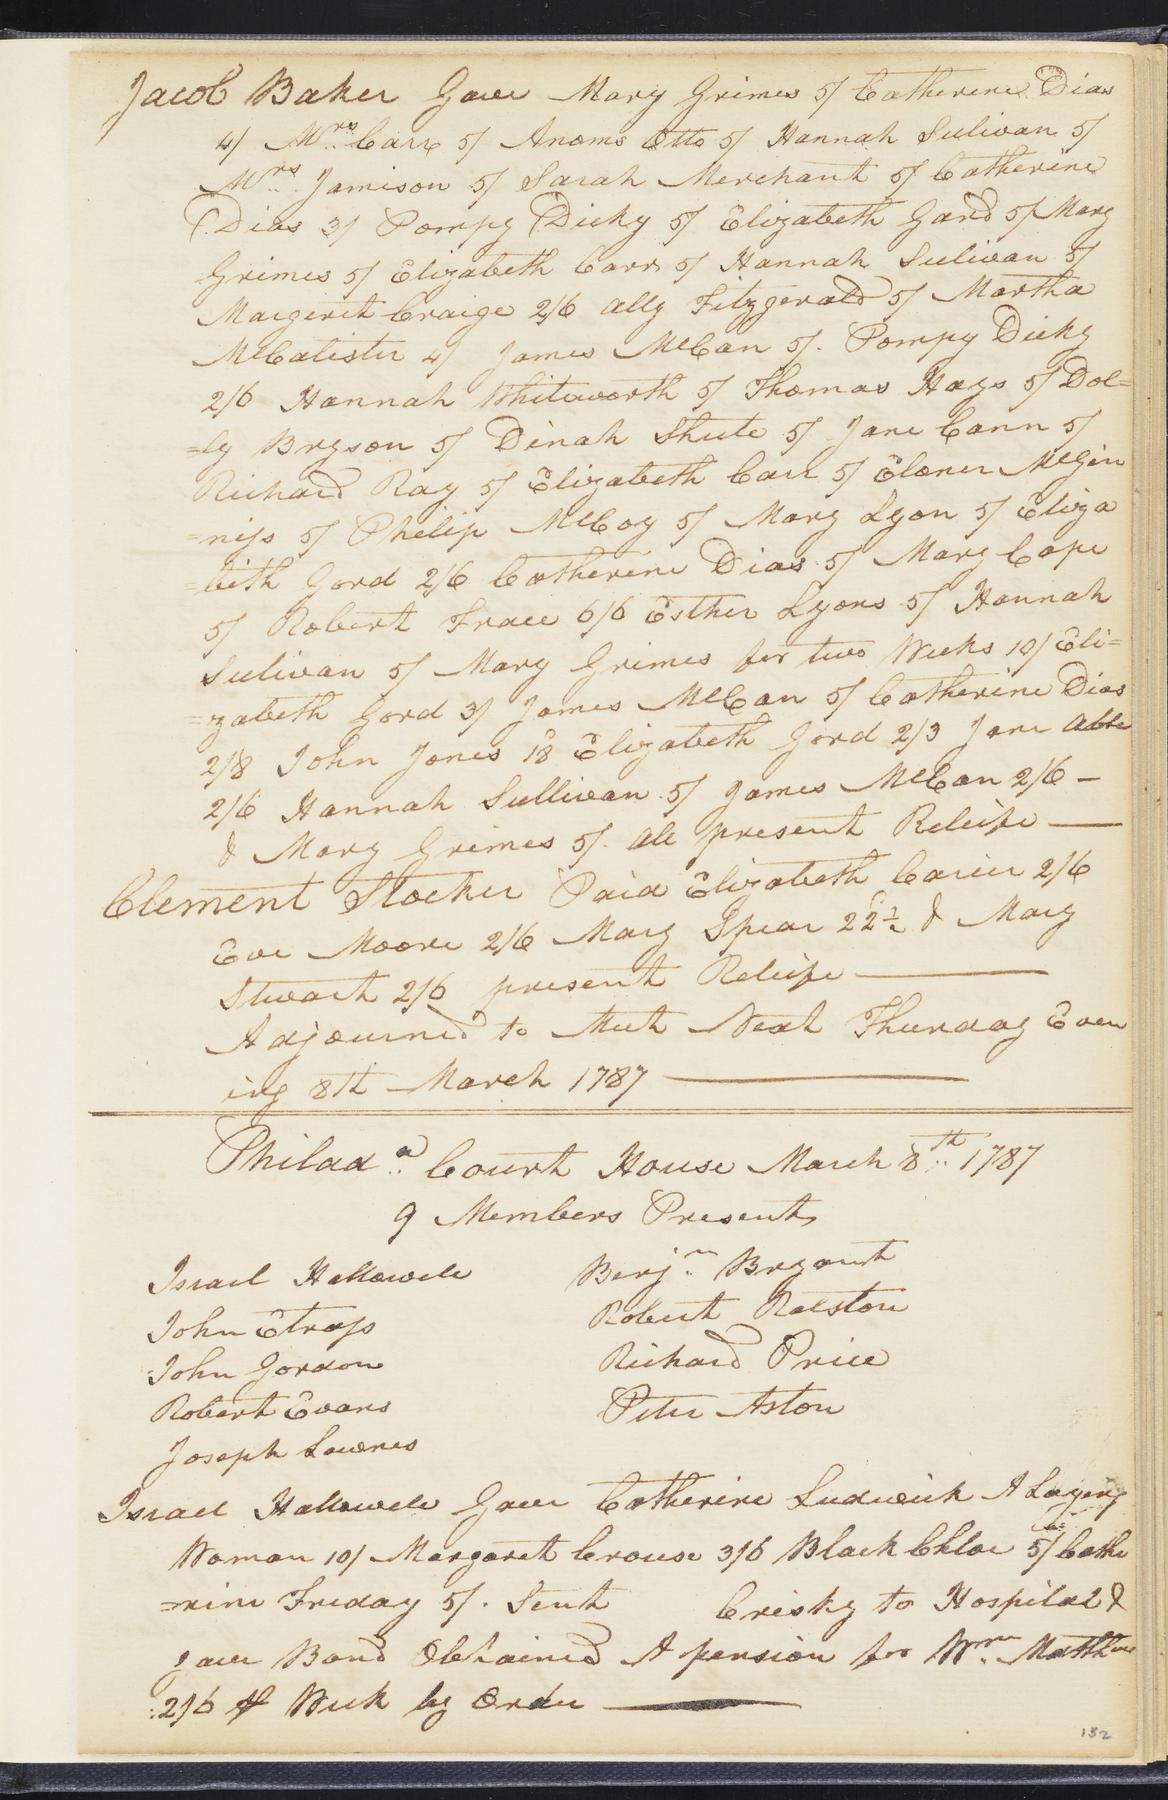 Jacob Baker Gave Mary Grimes 5/ Catherine Dias
4/ Mrs Carr 5/ Anoms Otto 5/ Hannah Sulivan 5/
Mrs Jamison 5/ Sarah Merchant 5/ Catherine
Dias 3/ Pompy Dicky 5/ Elizabeth Gard 5/ Mary
Grimes 5/ Elizabeth Carr 5/ Hannah Sulivan 5/
Margerit Craige 2/6 ally Fitzgerald 5/ Martha
McCalister 4/ James McCan 5/. Pompy Dicky
2/6 Hannah Whitworth 5/ Thomas Hays 5/ Dol=
=ly Bryson 5/ Dinah Shute 5/ Jane Cann 5/
Richard Ray 5/ Elizabeth Carr 5/ Eloner McGin
=niss 5/ Philip McCoy 5/ Mary Lyon 5/ Eliza
=beth Gord 2/6 Catherine Dias 5/ Mary Cope
5/ Robert Frace 6/6 Esther Lyons 5/ Hannah
Sulivan 5/ Mary Grimes for two Weeks 10/ Eli=
=zabeth Gord 3/ James McCan 5/ Catherine Dias
2/8 John Jones 18 Elizabeth Gord 2/3 Jane Able
2/6 Hannah Sullivan 5/ James McCan 2/6 —
& Mary Grimes 5/. all present Releife —
Clement Stocker Paid Elizabeth Carier 2/6
Eve Moore 2/6 Mary Spear 22½ & Mary
Stwart 2/6 present Releife —
Adjourned to Meet Next Thursday Even
ing 8th March 1787 —
Philada Court House March 8th 1787
9 Members Present
Israel Hallowell
John Stross
John Gordon
Robert Evans
Joseph Lownes
Benjn Bryant
Robert Ralston
Richard Price
Peter Aston
Israel Hallowell Gave Catherine Ludwick A Laying
Woman 10/ Margaret Crouse 3/6 Black Chloe 5/ Cathe
=rine Friday 5/. Sent Crisky to Hospital &
gave Bond Obtained A pension for Wm Matthws
2/6 ⅌ Week by Order —
132